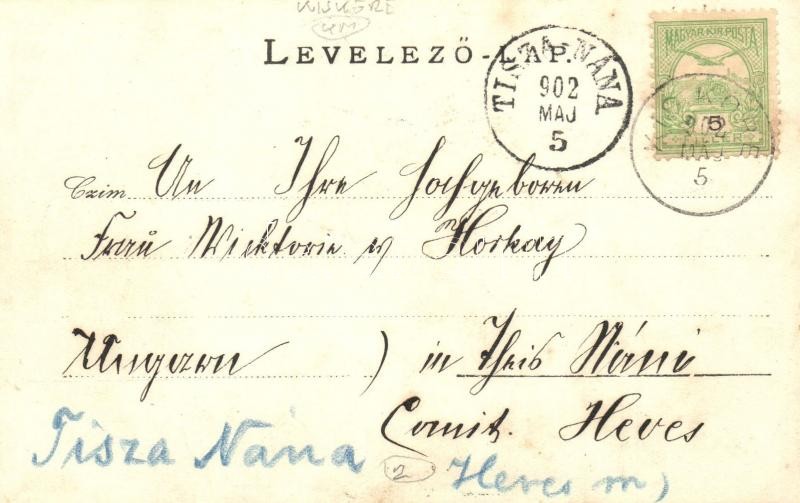 KISKÖRE
LEVELEZŐ-LAP.
TISZA-NÁNA
902
MAJ
5
MAGYAR KIR. POSTA
5
902
MAJ
5
Czim An Ihre Hochgeboren
Frau Wicktorie v Horkay
Ungarn ) in Theis Nánú
Comit. Heves
Tisza Nána 2 Heves m)